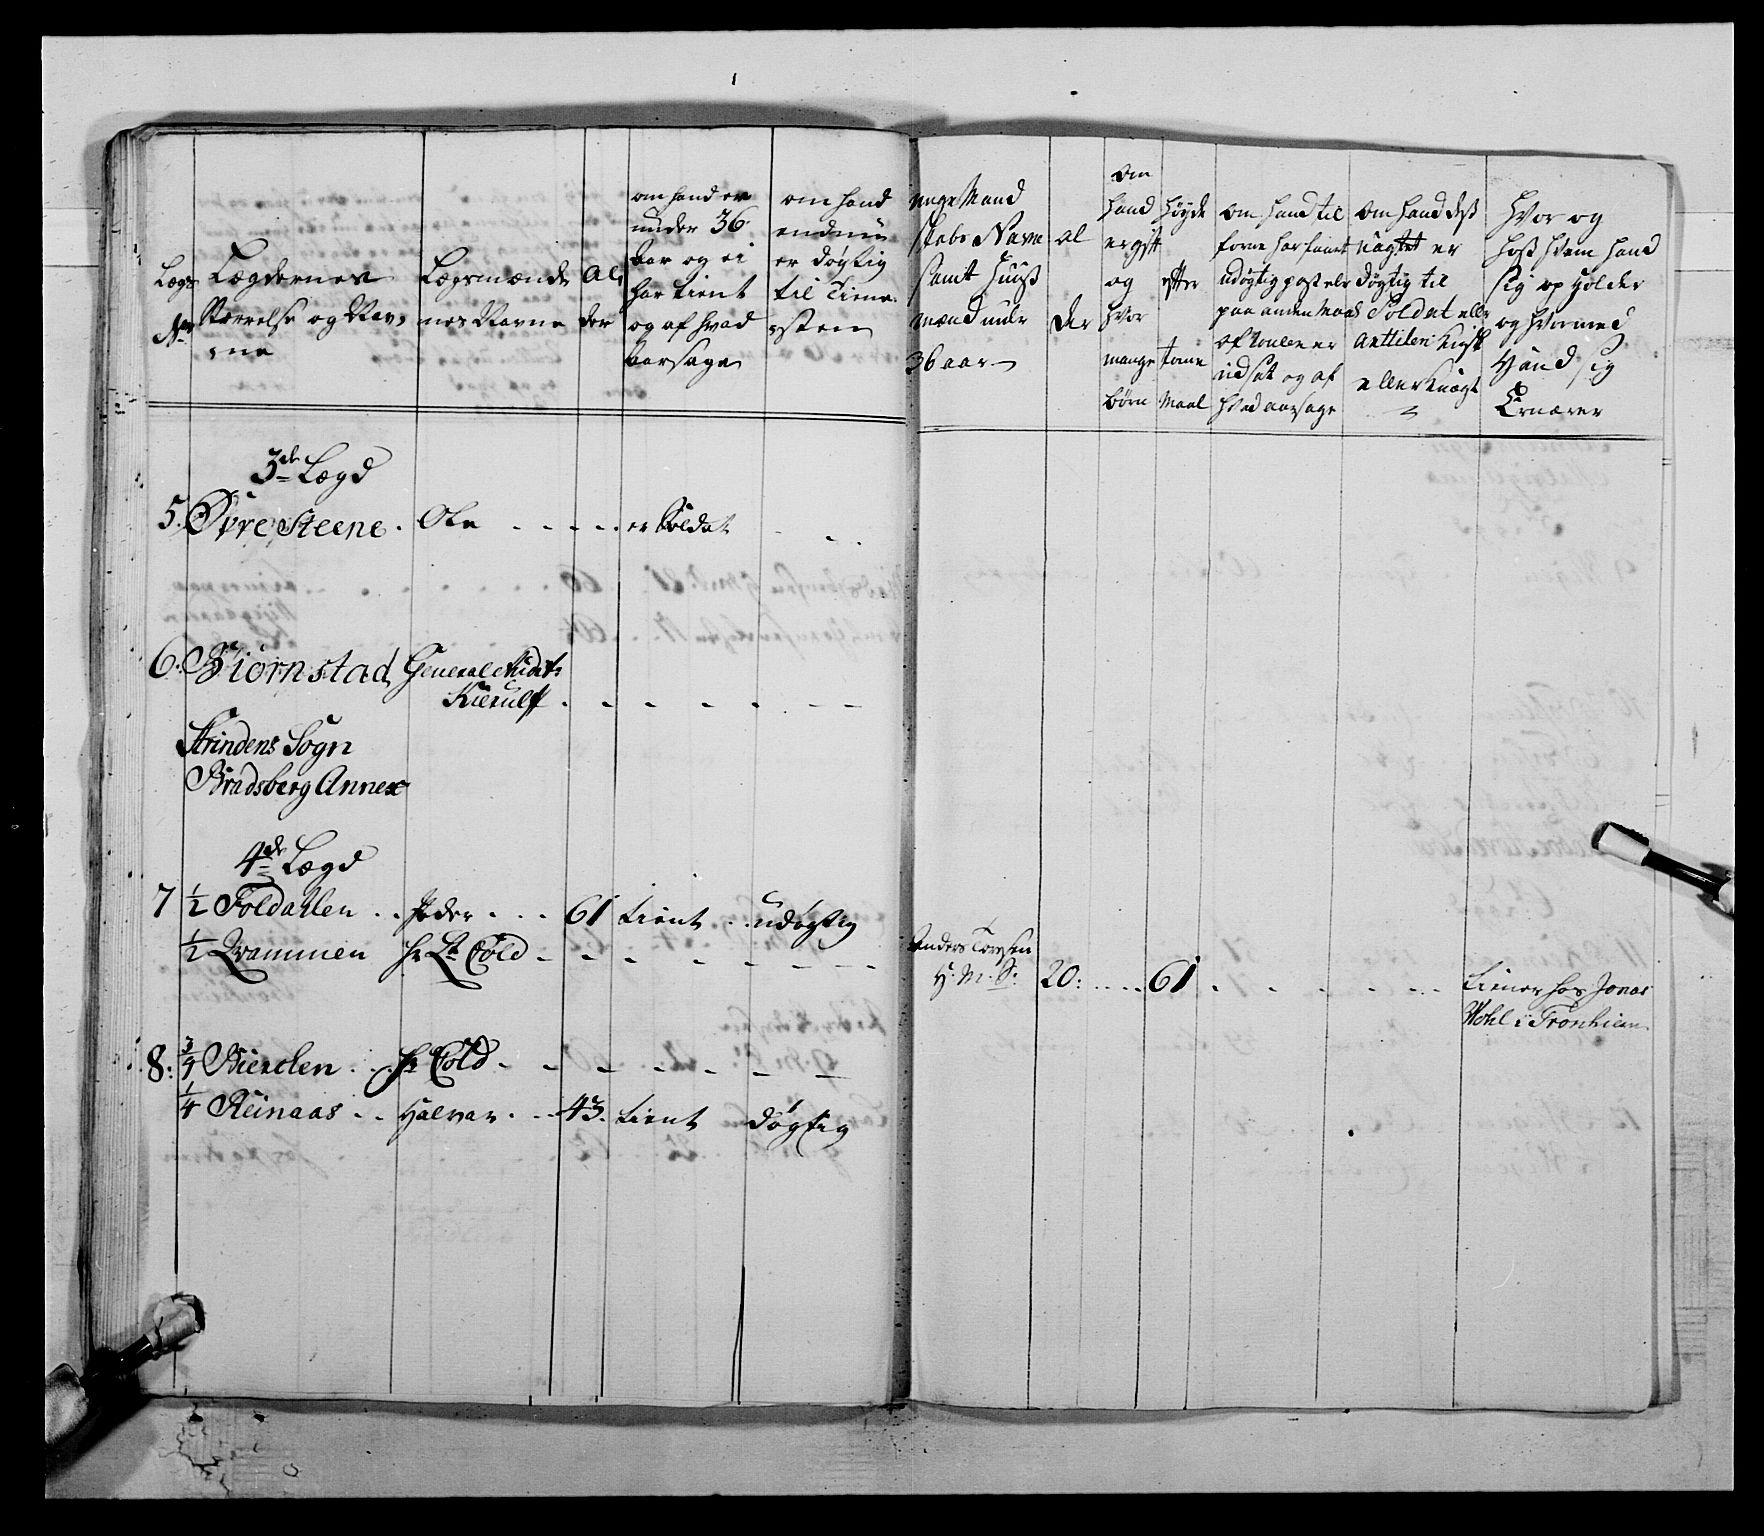 Lægs
No
Lægdernes
Størrelse og Nav,
ne
Lægsmænde
nes Navne
Al
der
om hand er
under 36
aar og ei
har tient
og af hvad
aarsage
om hand
endnu
er døgtig
til Tiene
sten
unge Mand
skabs Navne
samt Huus
mænd unde
36 aar
al
der
Om
hand
er gift
og
hvor
mange
børn
Høyde
efter
tome
Maal
om hand til
forne har faaet
udøgtig pas elr
paa anden Maade
af Roulen er
udsat og af
hvad aarsage
om hand des
uagtet er
døgtig til
Soldat eller
eller Knægt
Hvor og
hos hvem hand
sig op holder
og hvormed
Hand sig
Ernærer
3de Lægd
5. Øvre Steene . Ole . . . . . er Soldat
6. Biörnstad General
Kierulff
Strindens Sogn
Bradsberg Annex
4de Lægd
7 1/2 Foldahlen . . Peder . . . 61 tient . . udøgtig
1/2 Qvammen Hr Lt Cold
Anders Torsen
H. M. S: 20: 61 tiener hos Jonas
Wohl i Tronhiem
8: 3/4 Bierchen . . Hr Cold
1/4 Reinaas . . Halvar . . 43. tient døgtig